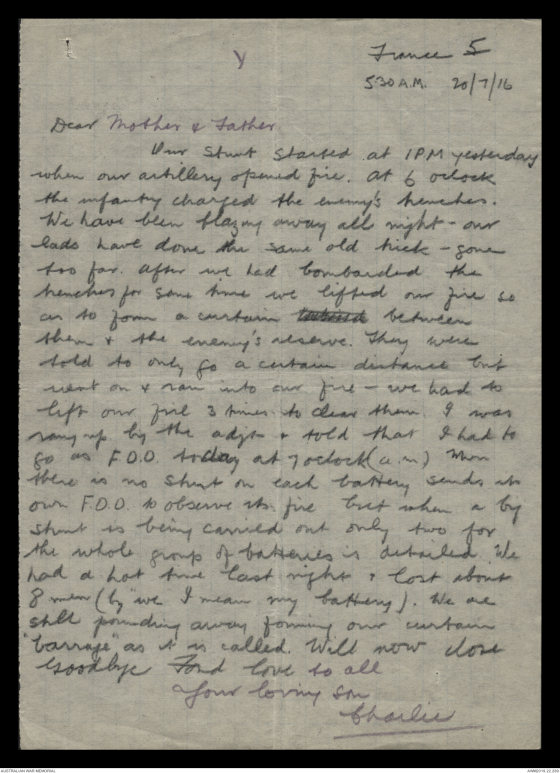 France 5
5.30 A.M. 20/7/16
Dear Mother & Father
Our stunt started at 1PM yesterday
when our artillery opened fire. At 6 oclock
the infantry charged the enemy's trenches.
We have been blazing away all night - our
lads have done the same old trick - gone
too far. After we had bombarded the
trenches for some time we lifted our fire so
as to form a curtain between
them & the enemy's reserve. They were
told to only go a certain distance but
went on & ran into our fire - we had to
lift our fire 3 times to clear them. I was
rang up by the adjt & told that I had to
go as F.O.O. today at 7 oclock (a.m) When
there is no stunt on each battery sends its
own F.O.O. to observe its fire but when a big
stunt is being carried out only two for
the whole group of batteries is detailed. We
had a hot time last night & lost about
8 men (by "we" I mean my battery). We are
still pounding away forming our curtain
"barrage" as it is called. Will now close
Goodbye Fond love to all
Your loving son
Charlie
AUSTRALIAN WAR MEMORIAL